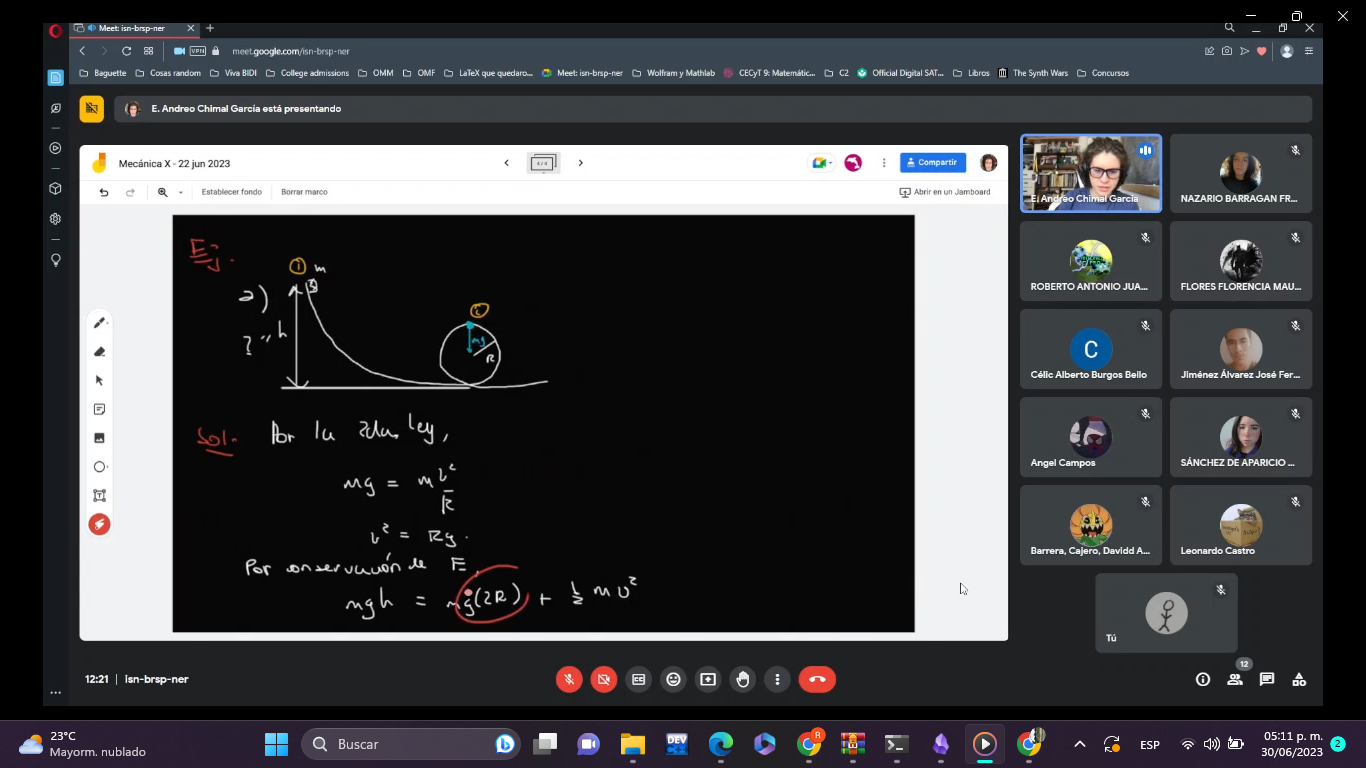 Meet: isn-brsp-ner
meet.google.com/isn-brsp-ner
VPN
Baguette
Cosas random
Viva BIDI
College admissions
OMM
OMF
LaTeX que quedaro...
Meet: isn-brsp-ner
Wolfram y Mathlab
CECyT 9: Matemátic...
C2
Official Digital SAT...
Libros
The Synth Wars
Concursos
E. Andreo Chimal García está presentando
Mecánica X - 22 jun 2023
4/4
Compartir
Establecer fondo
Borrar marco
Abrir en un Jamboard
Ej.
1 m
a)
h
?
2
mg
R
Sol. Por la 2da. ley,
mg = m v²/R
v² = Rg.
Por conservación de E,
mgh = mg(2R) + 1/2 m v²
E. Andreo Chimal García
NAZARIO BARRAGAN FR...
ROBERTO ANTONIO JUA...
FLORES FLORENCIA MAU...
Célic Alberto Burgos Bello
C
Jiménez Álvarez José Fer...
Angel Campos
SÁNCHEZ DE APARICIO ...
Barrera, Cajero, Davidd A...
Leonardo Castro
Tú
12:21
isn-brsp-ner
12
23°C
Mayorm. nublado
Buscar
DEV
R
ESP
05:11 p. m.
30/06/2023
2